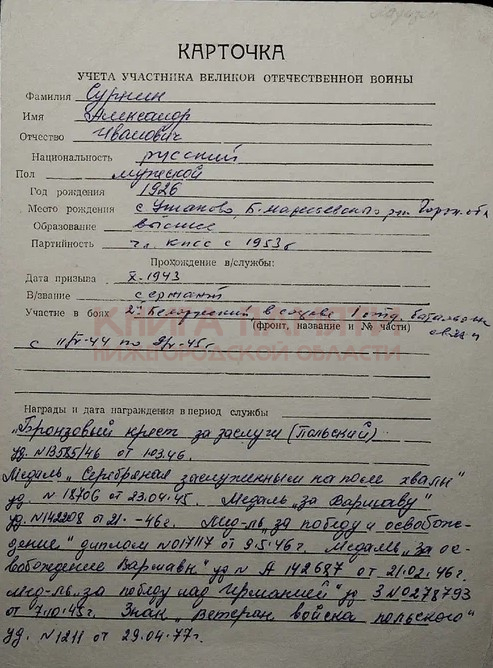 КАРТОЧКА
УЧЕТА УЧАСТНИКА ВЕЛИКОЙ ОТЕЧЕСТВЕННОЙ ВОЙНЫ
Фамилия Сурнин
Имя Александр
Отчество Иванович
Национальность русский
Пол мужской
Год рождения 1926
Место рождения с Ушаково, Б. Маресьевского р-н Горьк. обл
Образование высшее
Партийность чл. КПСС с 1953г
Прохождение в/службы:
Дата призыва X-1943
В/звание сержант
Участие в боях 2й Белорусский в составе 1 отд. батальона
(фронт, название и № части) связи
КНИГА ПАМЯТИ
НИЖЕГОРОДСКОЙ ОБЛАСТИ
с 44 по 9/V-45г
Награды и дата награждения в период службы
„Бронзовый крест за заслуги (польский)
уд. №13585/46 от 1.03.46.
Медаль „Серебряная заслуженным на поле хвалы"
уд. №18706 от 23.04.45. Медаль „за Варшаву"
уд. №142208 от 21. -46г. Мед-ль „за победу и освобож-
дение" диплом №017117 от 9.5.46г. Медаль „За ос-
вобождение Варшавы" уд № А 142687 от 21.02.46г.
Мед-ль „за победу над Германией" уд З №0278793
от 7.10.45г. Знак „Ветеран войска польского"
уд. №1211 от 29.04.77г.